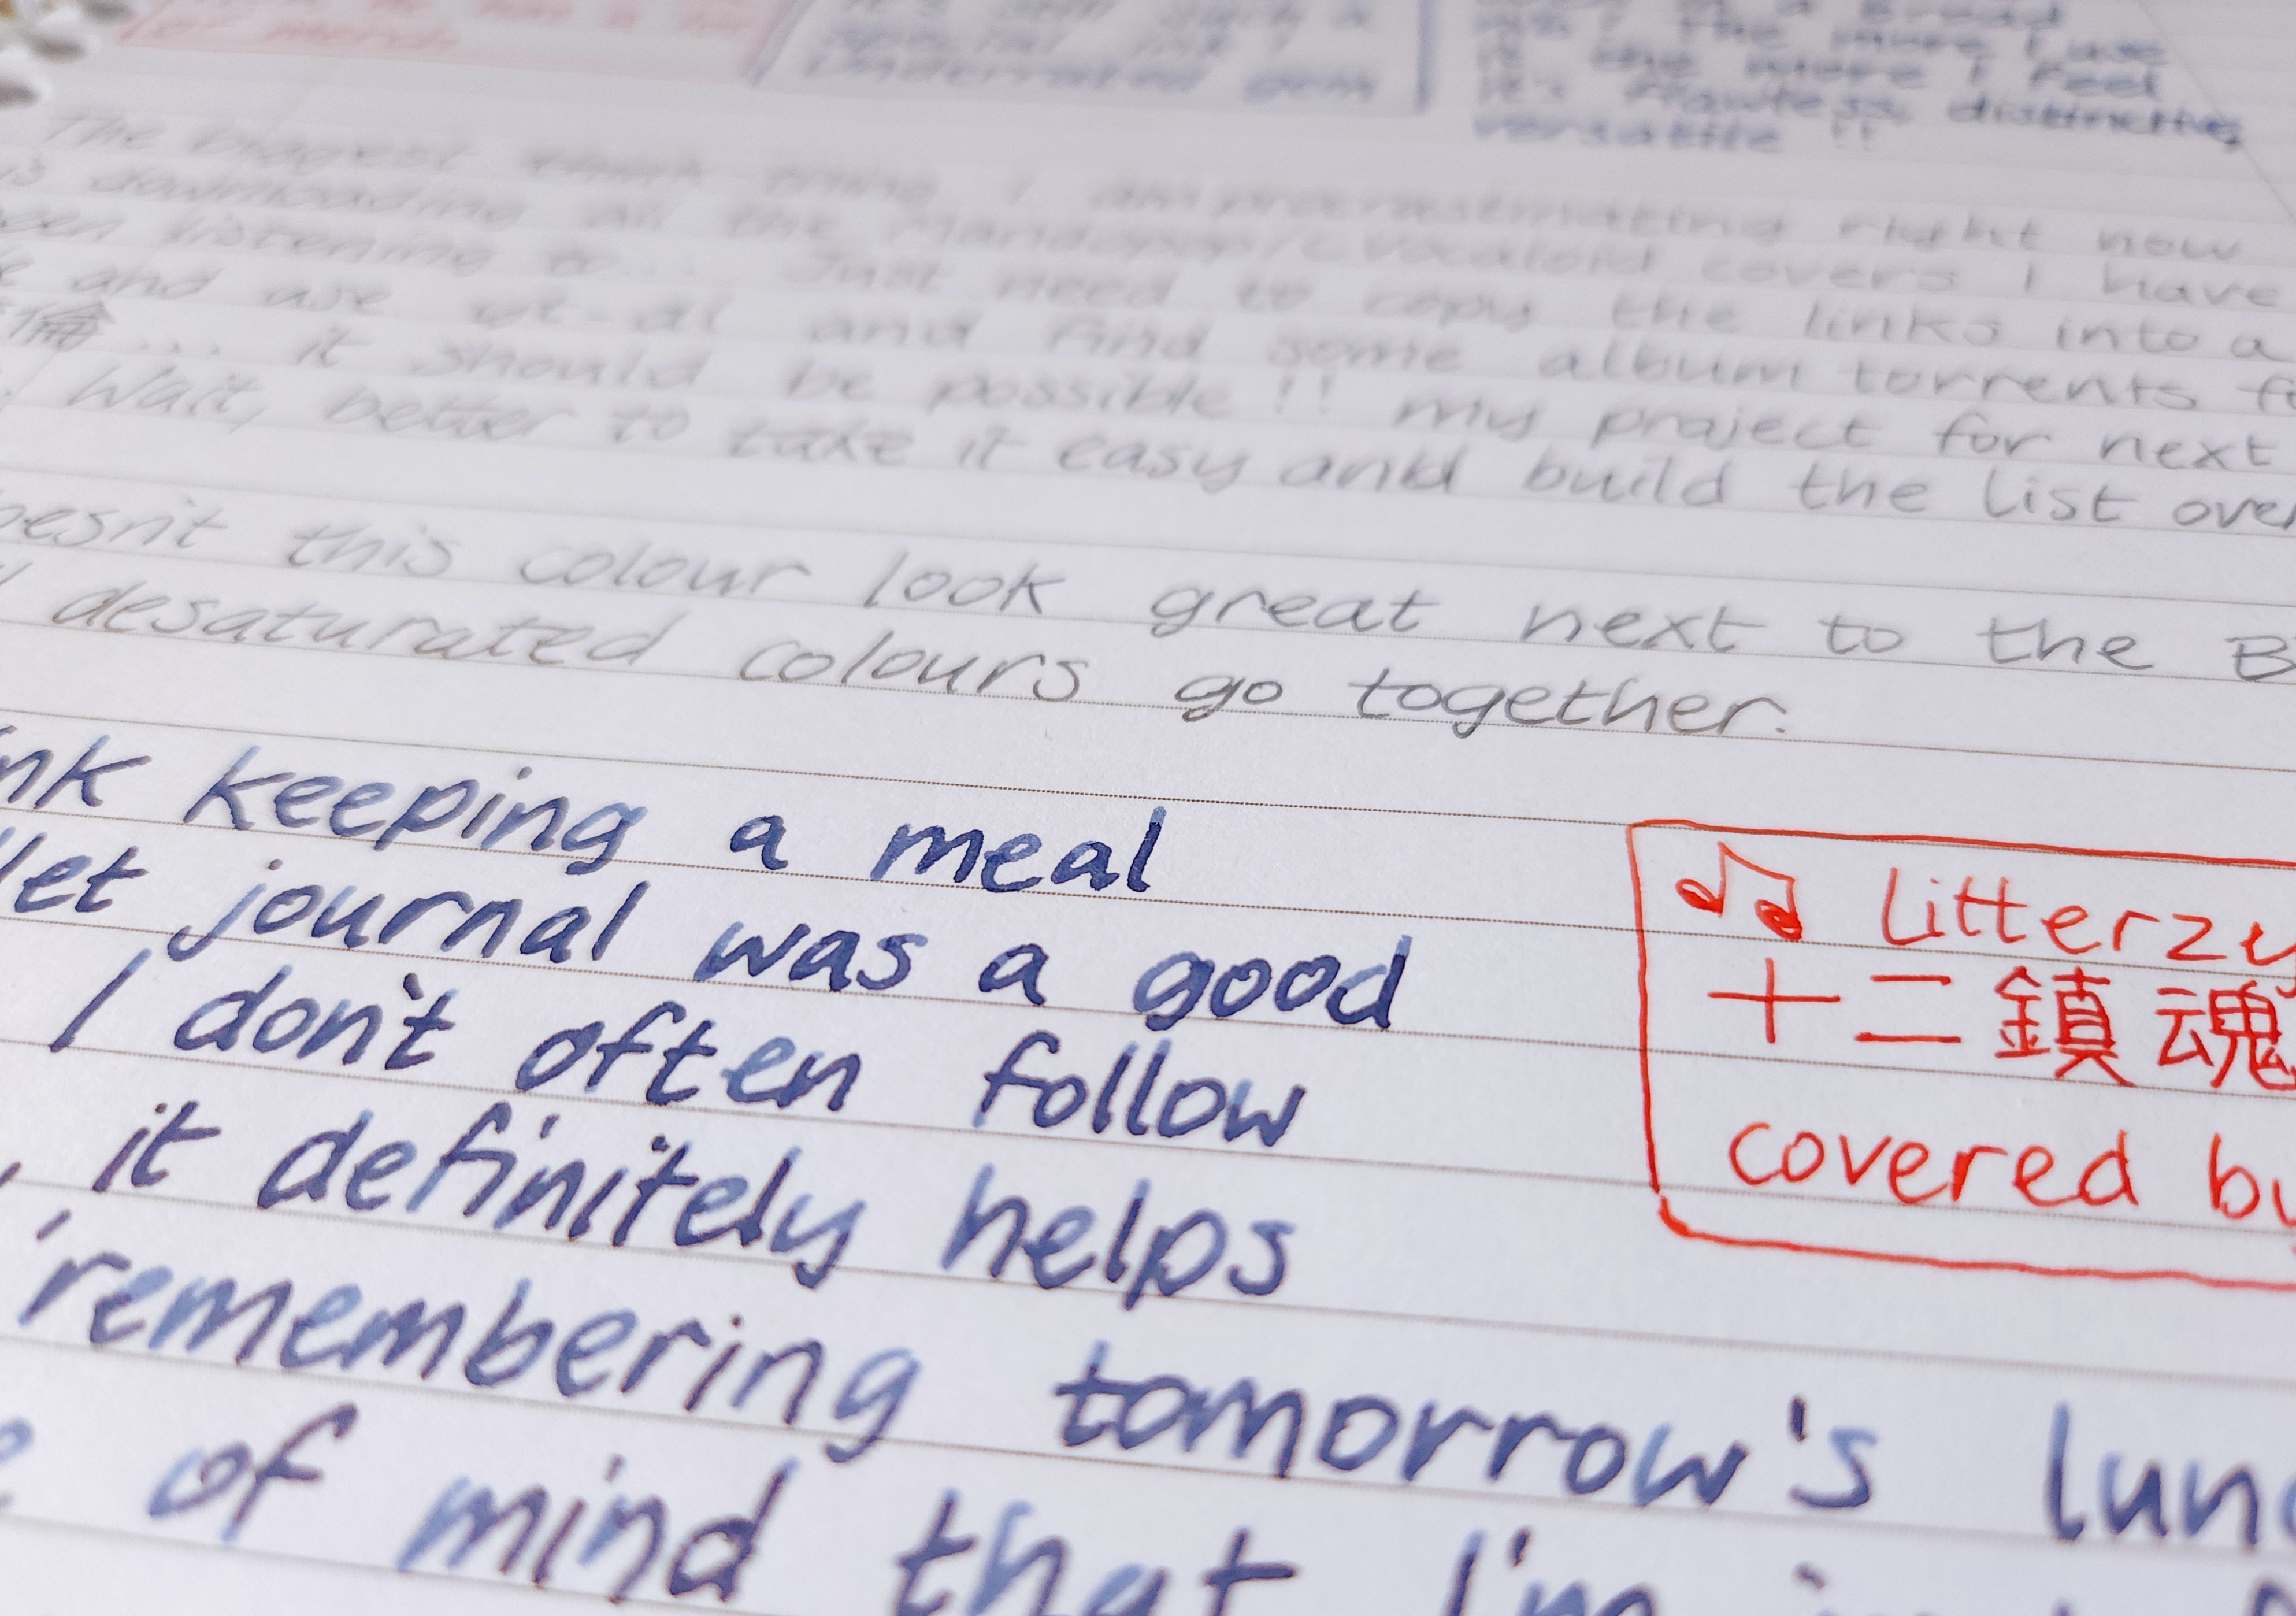 of merch
it's still such a
special ink!
Underrated gem
broad
The more I use
it the more I feel
it's flawless, distinctive,
versatile !!
The biggest think thing I am procrastinating right now
is downloading all the Mandopop/CVocaloid covers I have
listening to... Just need to copy the links into a
and use yt-dl and find some album torrents
倫... it should be possible!! My project for next
Wait, better to take it easy and build the list over
oesn't this colour look great next to the B
desaturated colours go together.
nk keeping a meal
let journal was a good
I don't often follow
, it definitely helps
remembering tomorrow's lun
of mind that I'm
♫ Litterzy
十二鎮魂
covered by